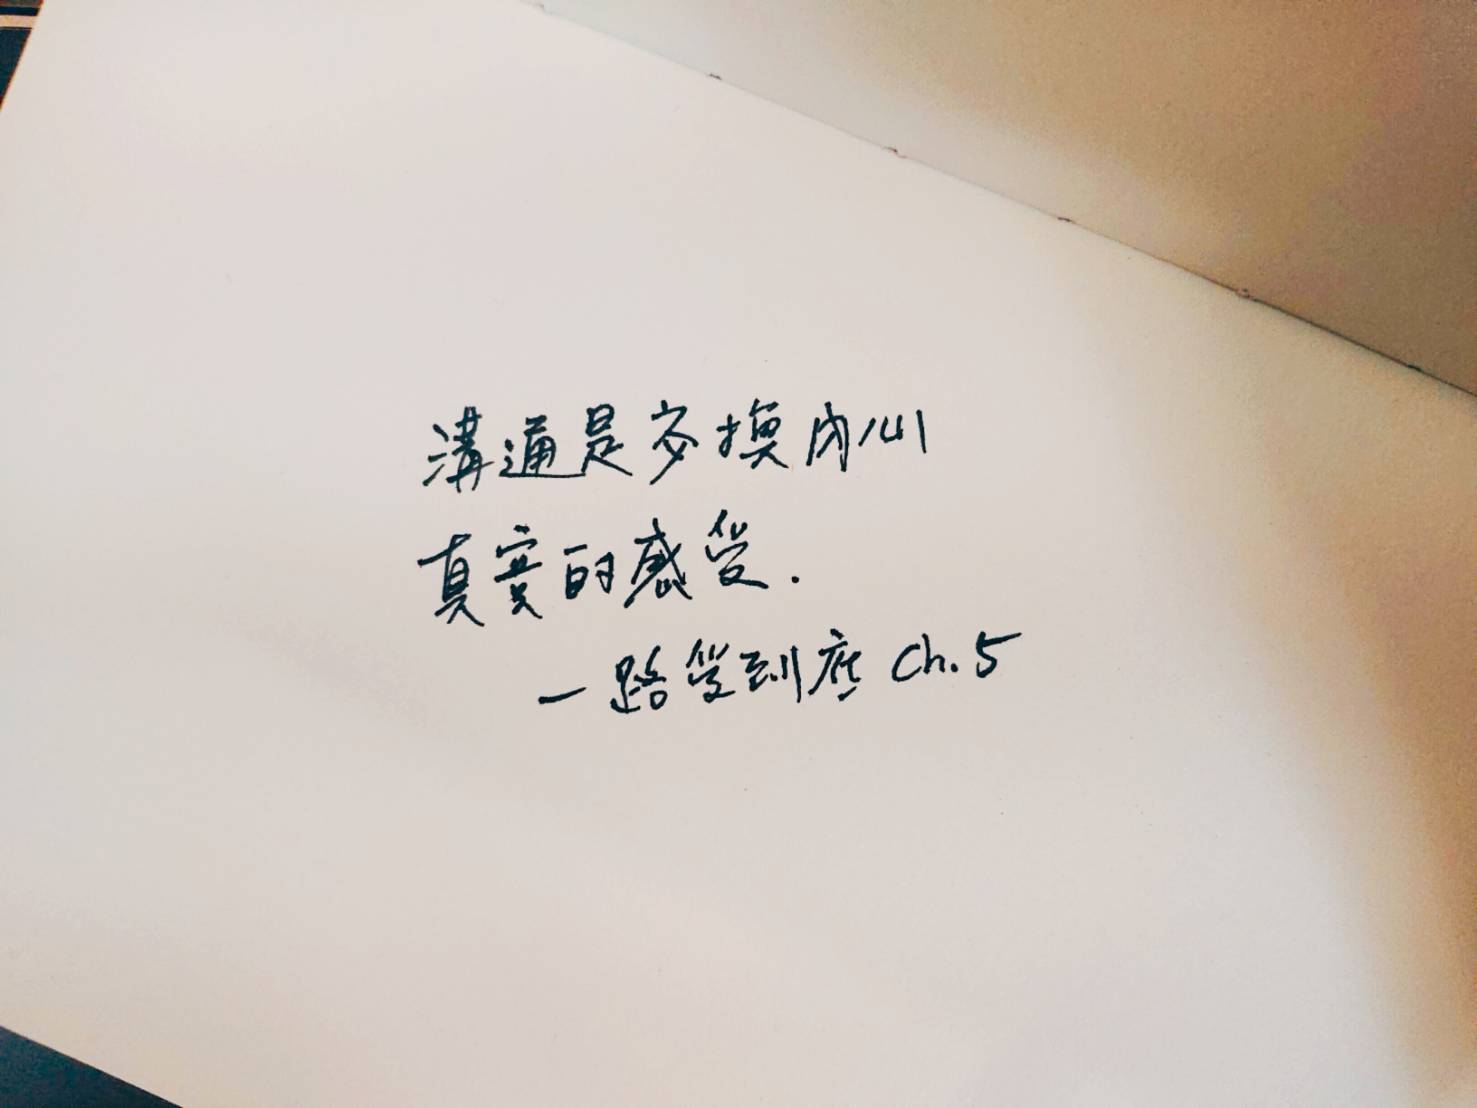 溝通是交換內心
真實的感受.
一路受到底 Ch.5